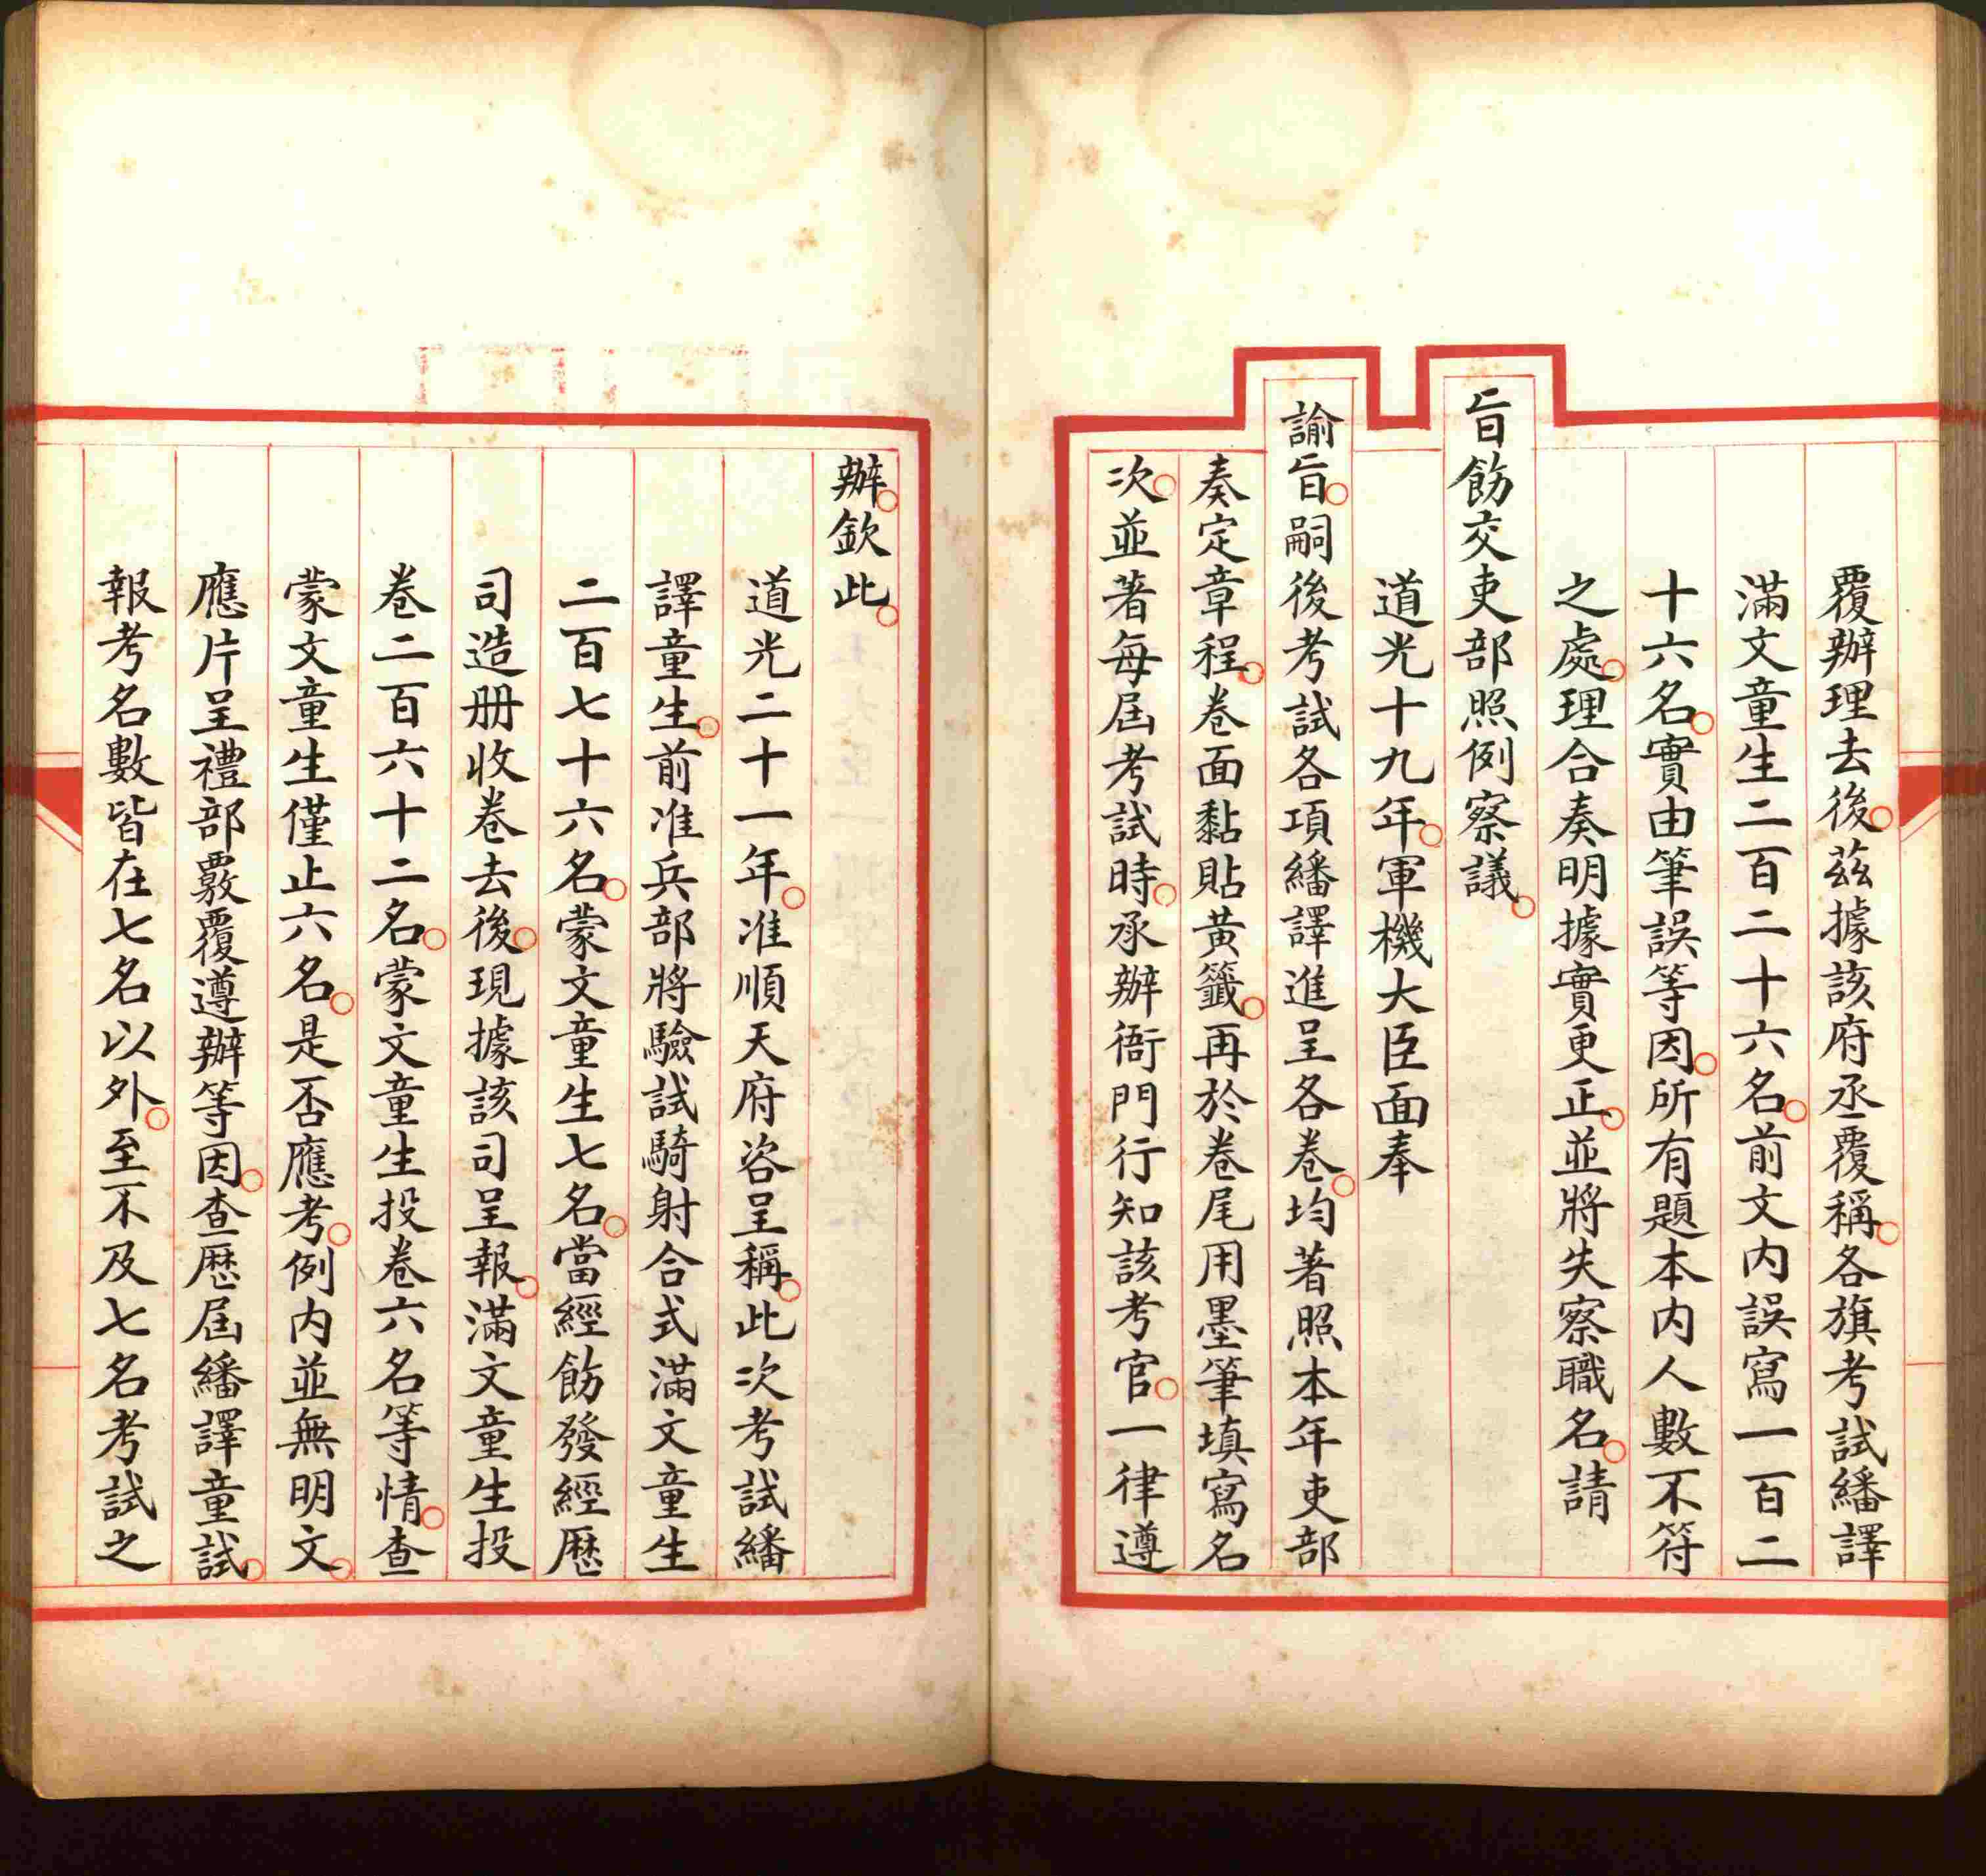 覆辦理去後兹據該府丞覆稱各旗考試繙譯
滿文童生二百二十六名前文内誤寫一百二
十六名實由筆誤等因所有題本内人數不符
之處理合奏明據實更正並將失察職名請
旨飭交吏部照例察議
道光十九年軍機大臣面奉
諭旨嗣後考試各項繙譯進呈各卷均著照本年吏部
奏定章程卷面黏貼黃籤再於卷尾用墨筆填寫名
次並著每屆考試時承辦衙門行知該考官一律遵
辦欽此
道光二十一年准順天府咨呈稱此次考試繙
譯童生前准兵部將驗試騎射合式滿文童生
二百七十六名蒙文童生七名當經飭發經歷
司造册收卷去後現據該司呈報滿文童生投
卷二百六十二名蒙文童生投卷六名等情查
蒙文童生僅止六名是否應考例内並無明文
應片呈禮部覈覆遵辦等因查歷屆繙譯童試
報考名數皆在七名以外至不及七名考試之